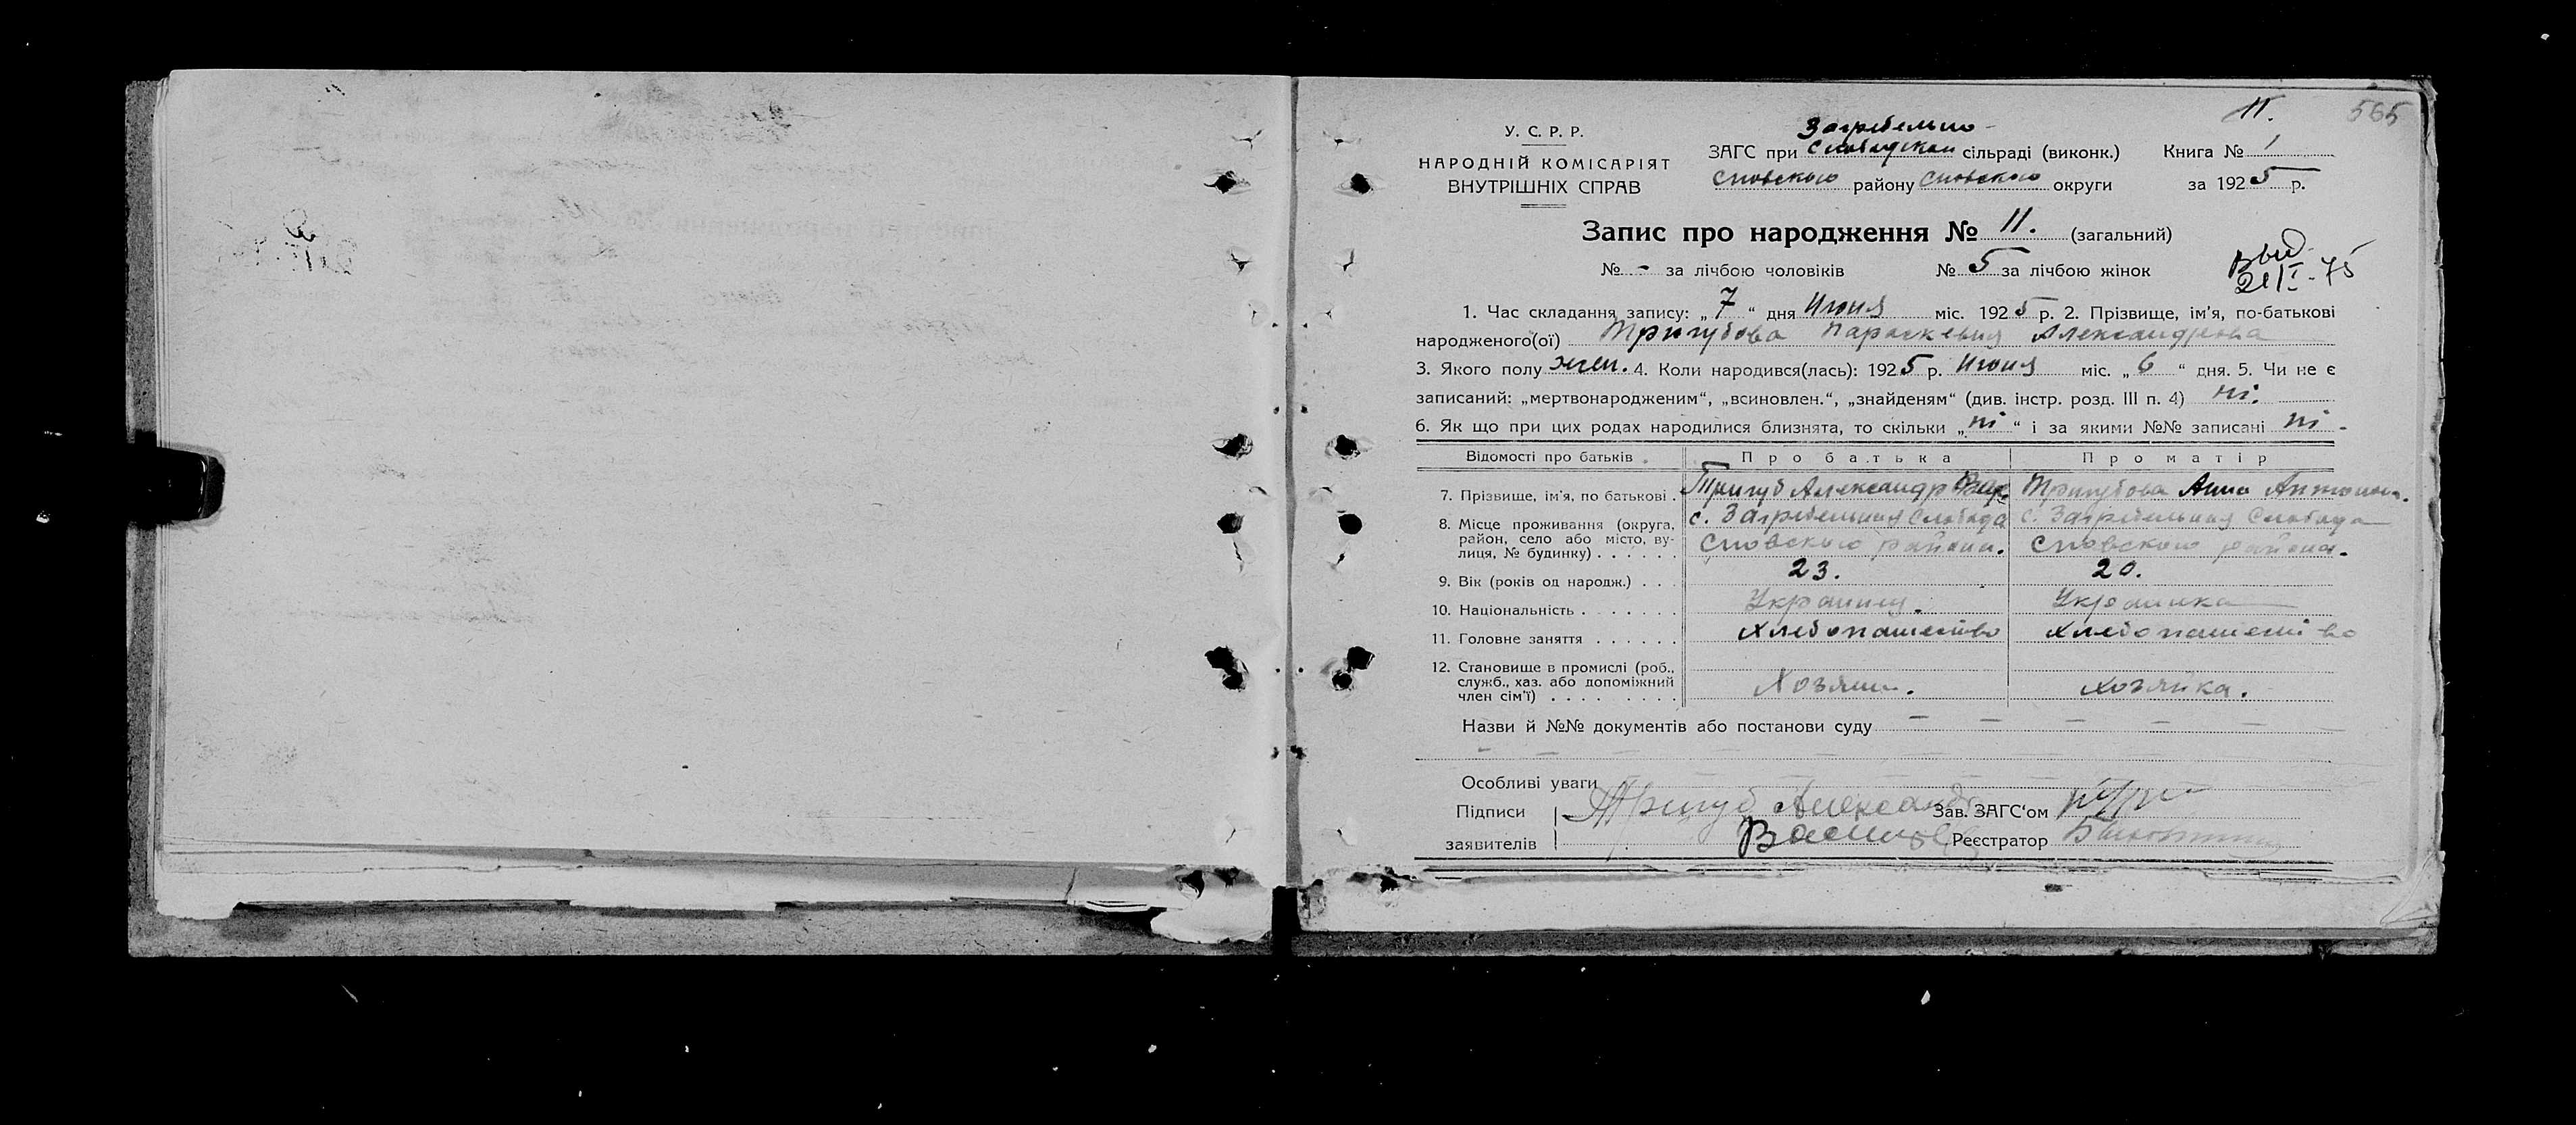 11. 565
У. С. Р. Р.
НАРОДНІЙ КОМІСАРІЯТ
ВНУТРІШНІХ СПРАВ
Загребельно-
ЗАГС при Слободском сільраді (виконк.) Книга № 1
Сновского району Сновского округи за 1925 р.
Запис про народження № 11. (загальний)
№ - за лічбою чоловіків № 5 за лічбою жінок
Выд
21/I-75
1. Час складання запису: „ 7 “ дня Июня міс. 1925 р. 2. Прізвище, ім’я, по-батькові
народженого(ої) Тригубова Параскевия Александрова
3. Якого полу жен. 4. Коли народився(лась): 1925 р. Июня міс. „ 6 “ дня. 5. Чи не є
записаний: „мертвонародженим“, „всиновлен.“, „знайденям“ (див. інстр. розд. III п. 4) ні.
6. Як що при цих родах народилися близнята, то скільки „ ні “ і за якими №№ записані ні -
Відомості про батьків Про батька Про матір
7. Прізвище, ім’я, по батькові . Тригуб Александр Тригубова Анна Антонов.
8. Місце проживання (округа, с. Загребельная Слобода с. Загребельная Слобода
район, село або місто, ву-
лиця, № будинку) . . . . . . Сновского района. Сновского района.
9. Вік (років од народж.) . . . 23. 20.
10. Національність . . . . . . . Украинец. Украинка
11. Головне заняття . . . . . . Хлебопашество Хлебопашество
12. Становище в промислі (роб.,
служб., хаз. або допоміжний
член сім’ї) . . . . . . . . . Хозяин. Хозяйка.
Назви й №№ документів або постанови суду - - - - -
Особливі уваги
Підписи Тригуб Александр Зав. ЗАГС‘ом
заявителів Васильев Реєстратор